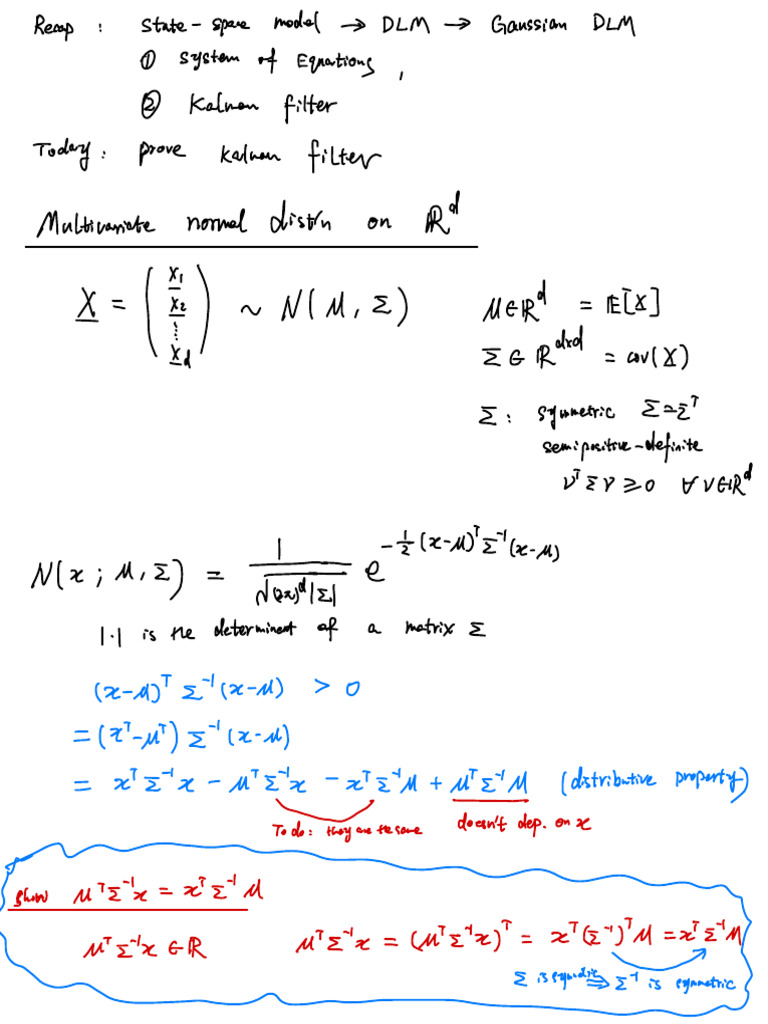 Recap : State-space model → DLM → Gaussian DLM
① System of Equations,
② Kalman filter
Today : prove kalman filter
Multivariate normal distn on ℝ^d
X = (X₁ X₂ ⋮ X_d) ~ N(μ, Σ)
μ∈ℝ^d = 𝔼[X]
Σ∈ℝ^{d×d} = cov(X)
Σ : symmetric Σ=Σ^T
semipositive-definite
ν^T Σ ν ≥ 0 ∀ ν∈ℝ^d
N(x ; μ, Σ) = 1/√((2π)^d |Σ|) e^{-1/2 (x-μ)^T Σ^{-1} (x-μ)}
|·| is the determinent of a matrix Σ
(x-μ)^T Σ^{-1} (x-μ) > 0
= (x^T-μ^T) Σ^{-1} (x-μ)
= x^T Σ^{-1} x - μ^T Σ^{-1} x - x^T Σ^{-1} μ + μ^T Σ^{-1} μ (distributive property)
To do : they are the same doesn't dep. on x
show μ^T Σ^{-1} x = x^T Σ^{-1} μ
μ^T Σ^{-1} x ∈ ℝ μ^T Σ^{-1} x = (μ^T Σ^{-1} x)^T = x^T (Σ^{-1})^T μ = x^T Σ^{-1} μ
Σ is symmetric ⇒ Σ^{-1} is symmetric